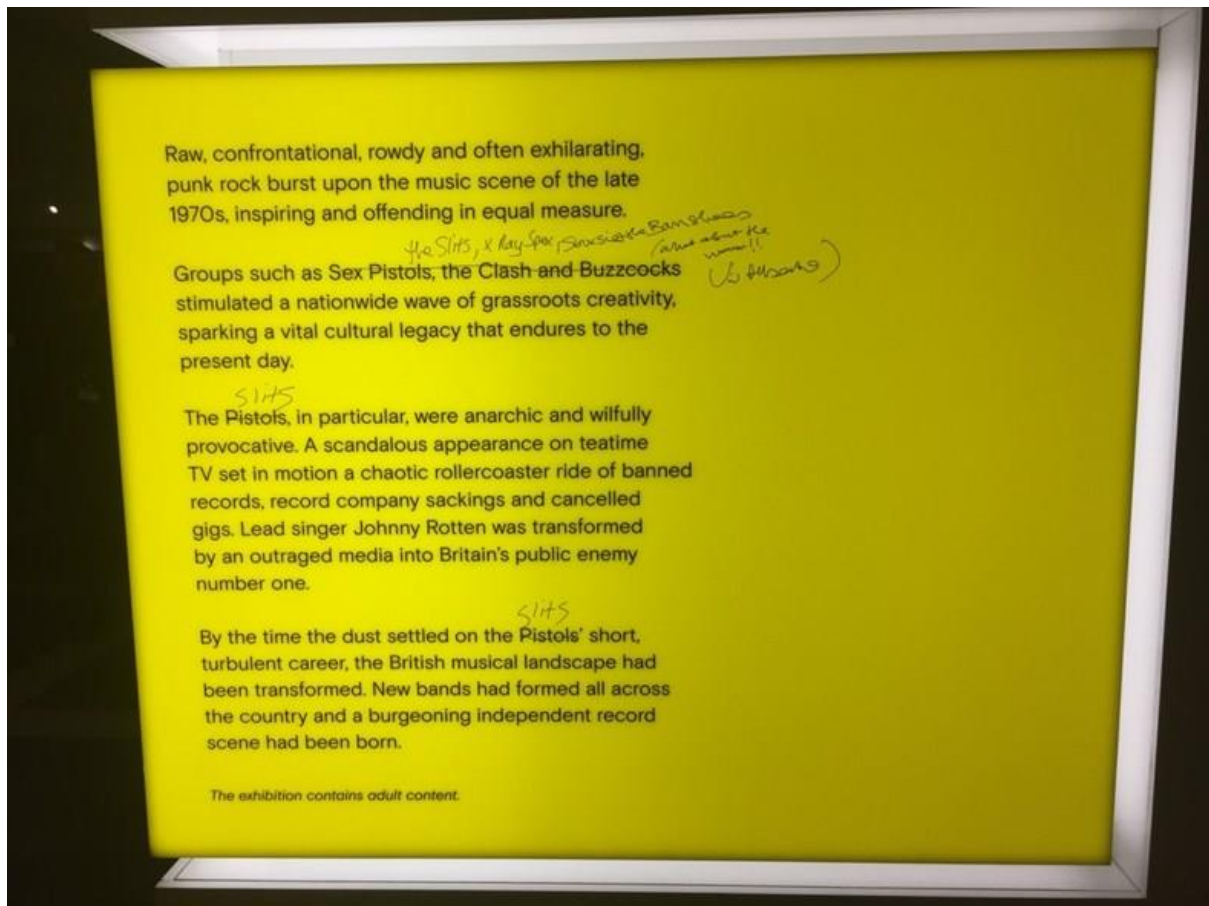 Raw, confrontational, rowdy and often exhilarating,
punk rock burst upon the music scene of the late
1970s, inspiring and offending in equal measure.
the Slits, X Ray Spex, Siouxsie & the Banshees
(what about the
women!!
Groups such as Sex Pistols, the Clash and Buzzcocks
stimulated a nationwide wave of grassroots creativity,
sparking a vital cultural legacy that endures to the
present day.
Slits
The Pistols, in particular, were anarchic and wilfully
provocative. A scandalous appearance on teatime
TV set in motion a chaotic rollercoaster ride of banned
records, record company sackings and cancelled
gigs. Lead singer Johnny Rotten was transformed
by an outraged media into Britain's public enemy
number one.
Slits
By the time the dust settled on the Pistols' short,
turbulent career, the British musical landscape had
been transformed. New bands had formed all across
the country and a burgeoning independent record
scene had been born.
The exhibition contains adult content.